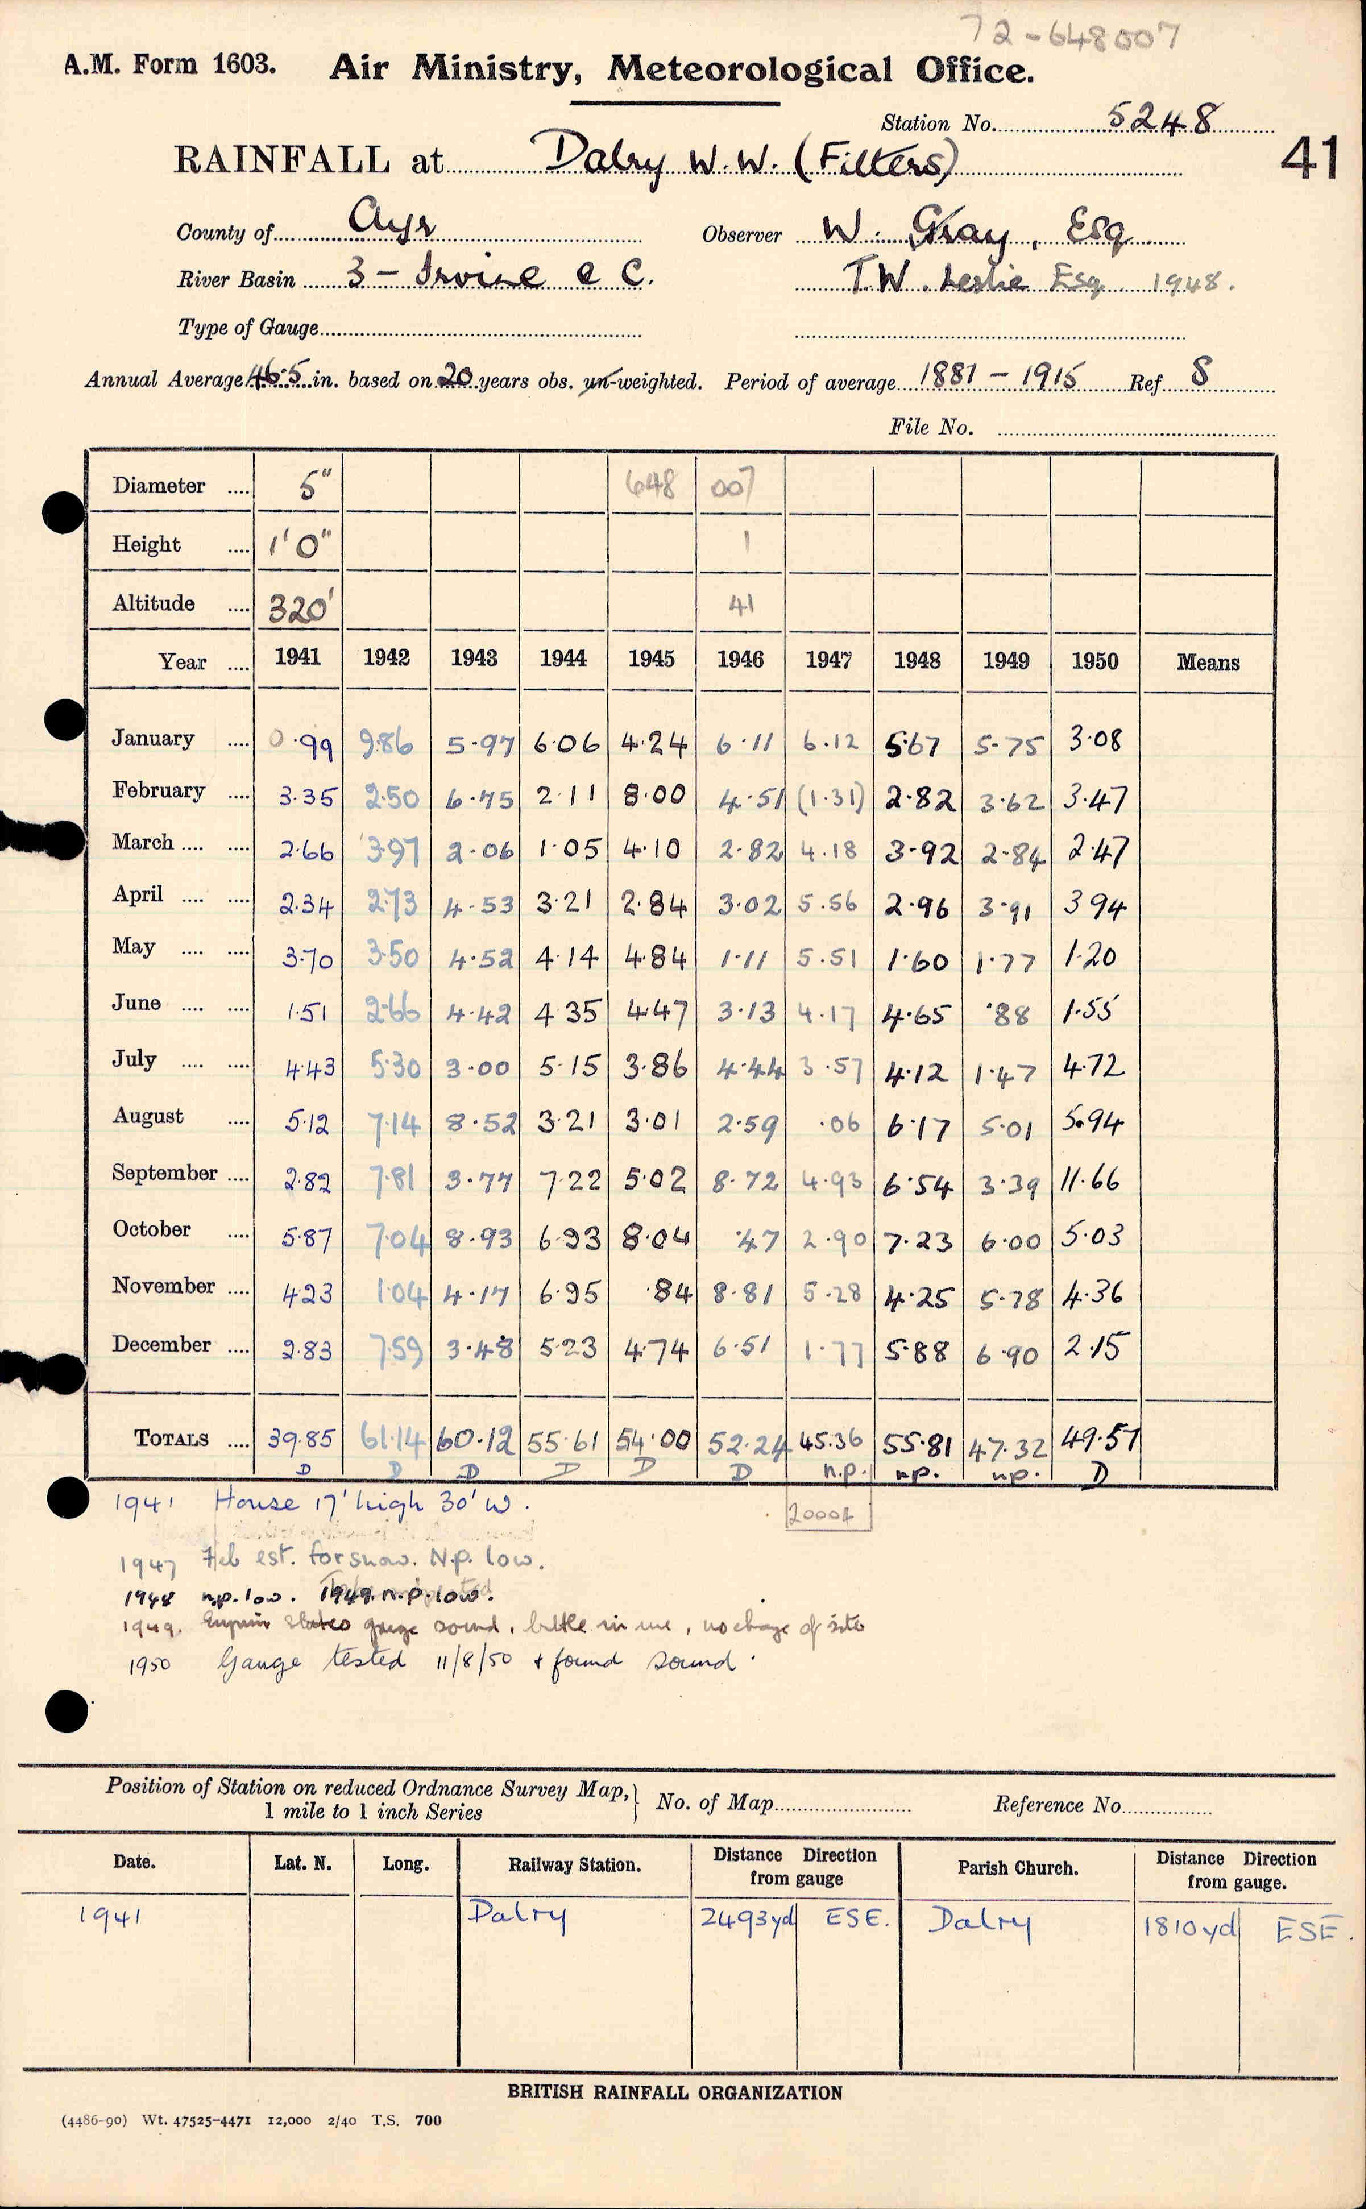 72-648007
A.M. Form 1603. Air Ministry, Meteorological Office.
Station No. 5248
41
RAINFALL at Dalry W.W. (Filters)
County of Ayr Observer W. Gray, Esq
River Basin 3 - Irvine & C. T.W. Leslie Esq. 1948.
Type of Gauge
Annual Average 46.5 in. based on 20 years obs. un-weighted. Period of average 1881 - 1915 Ref S
File No.
Diameter .... 5" 648 007
Height .... 1'0" 1
Altitude .... 320' 41
Year .... 1941 1942 1943 1944 1945 1946 1947 1948 1949 1950 Means
January .... 0.99 9.86 5.97 6.06 4.24 6.11 6.12 5.67 5.75 3.08
February .... 3.35 2.50 6.75 2.11 8.00 4.51 (1.31) 2.82 3.62 3.47
March .... .... 2.66 3.97 2.06 1.05 4.10 2.82 4.18 3.92 2.84 2.47
April .... .... 2.34 2.73 4.53 3.21 2.84 3.02 5.56 2.96 3.91 3 94
May .... .... 3.70 3.50 4.52 4.14 4.84 1.11 5.51 1.60 1.77 1.20
June .... .... 1.51 2.66 4.42 4 35 4.47 3.13 4.17 4.65 .88 1.55
July .... .... 4.43 5.30 3.00 5.15 3.86 4.44 3.57 4.12 1.47 4.72
August .... 5.12 7.14 8.52 3.21 3.01 2.59 .06 6.17 5.01 5.94
September .... 2.82 7.81 3.77 7.22 5.02 8.72 4.93 6.54 3.39 11.66
October .... 5.87 7.04 8.93 6.93 8.04 .47 2.90 7.23 6.00 5.03
November .... 4.23 1.04 4.17 6.95 .84 8.81 5.28 4.25 5.78 4.36
December .... 2.83 7.59 3.48 5.23 4.74 6.51 1.77 5.88 6.90 2.15
TOTALS .... 39.85 61.14 60.12 55.61 54.00 52.24 45.36 55.81 47.32 49.57
D D D D D D n.p. n.p. n.p. D
1941 House 17' high 30' W. 20004
1947 Feb est. for snow. N.p. low.
1948 n.p. low. 1949 n.p. low.
1949. states gauge sound, bottle in use, no change of site
1950 Gauge tested 11/8/50 & found sound.
Position of Station on reduced Ordnance Survey Map, 1 mile to 1 inch Series } No. of Map Reference No.
Date. Lat. N. Long. Railway Station. Distance Direction from gauge Parish Church. Distance Direction from gauge.
1941 Dalry 2493yd ESE. Dalry 1810yd ESE.
BRITISH RAINFALL ORGANIZATION
(4486-90) Wt. 47525-4471 12,000 2/40 T.S. 700